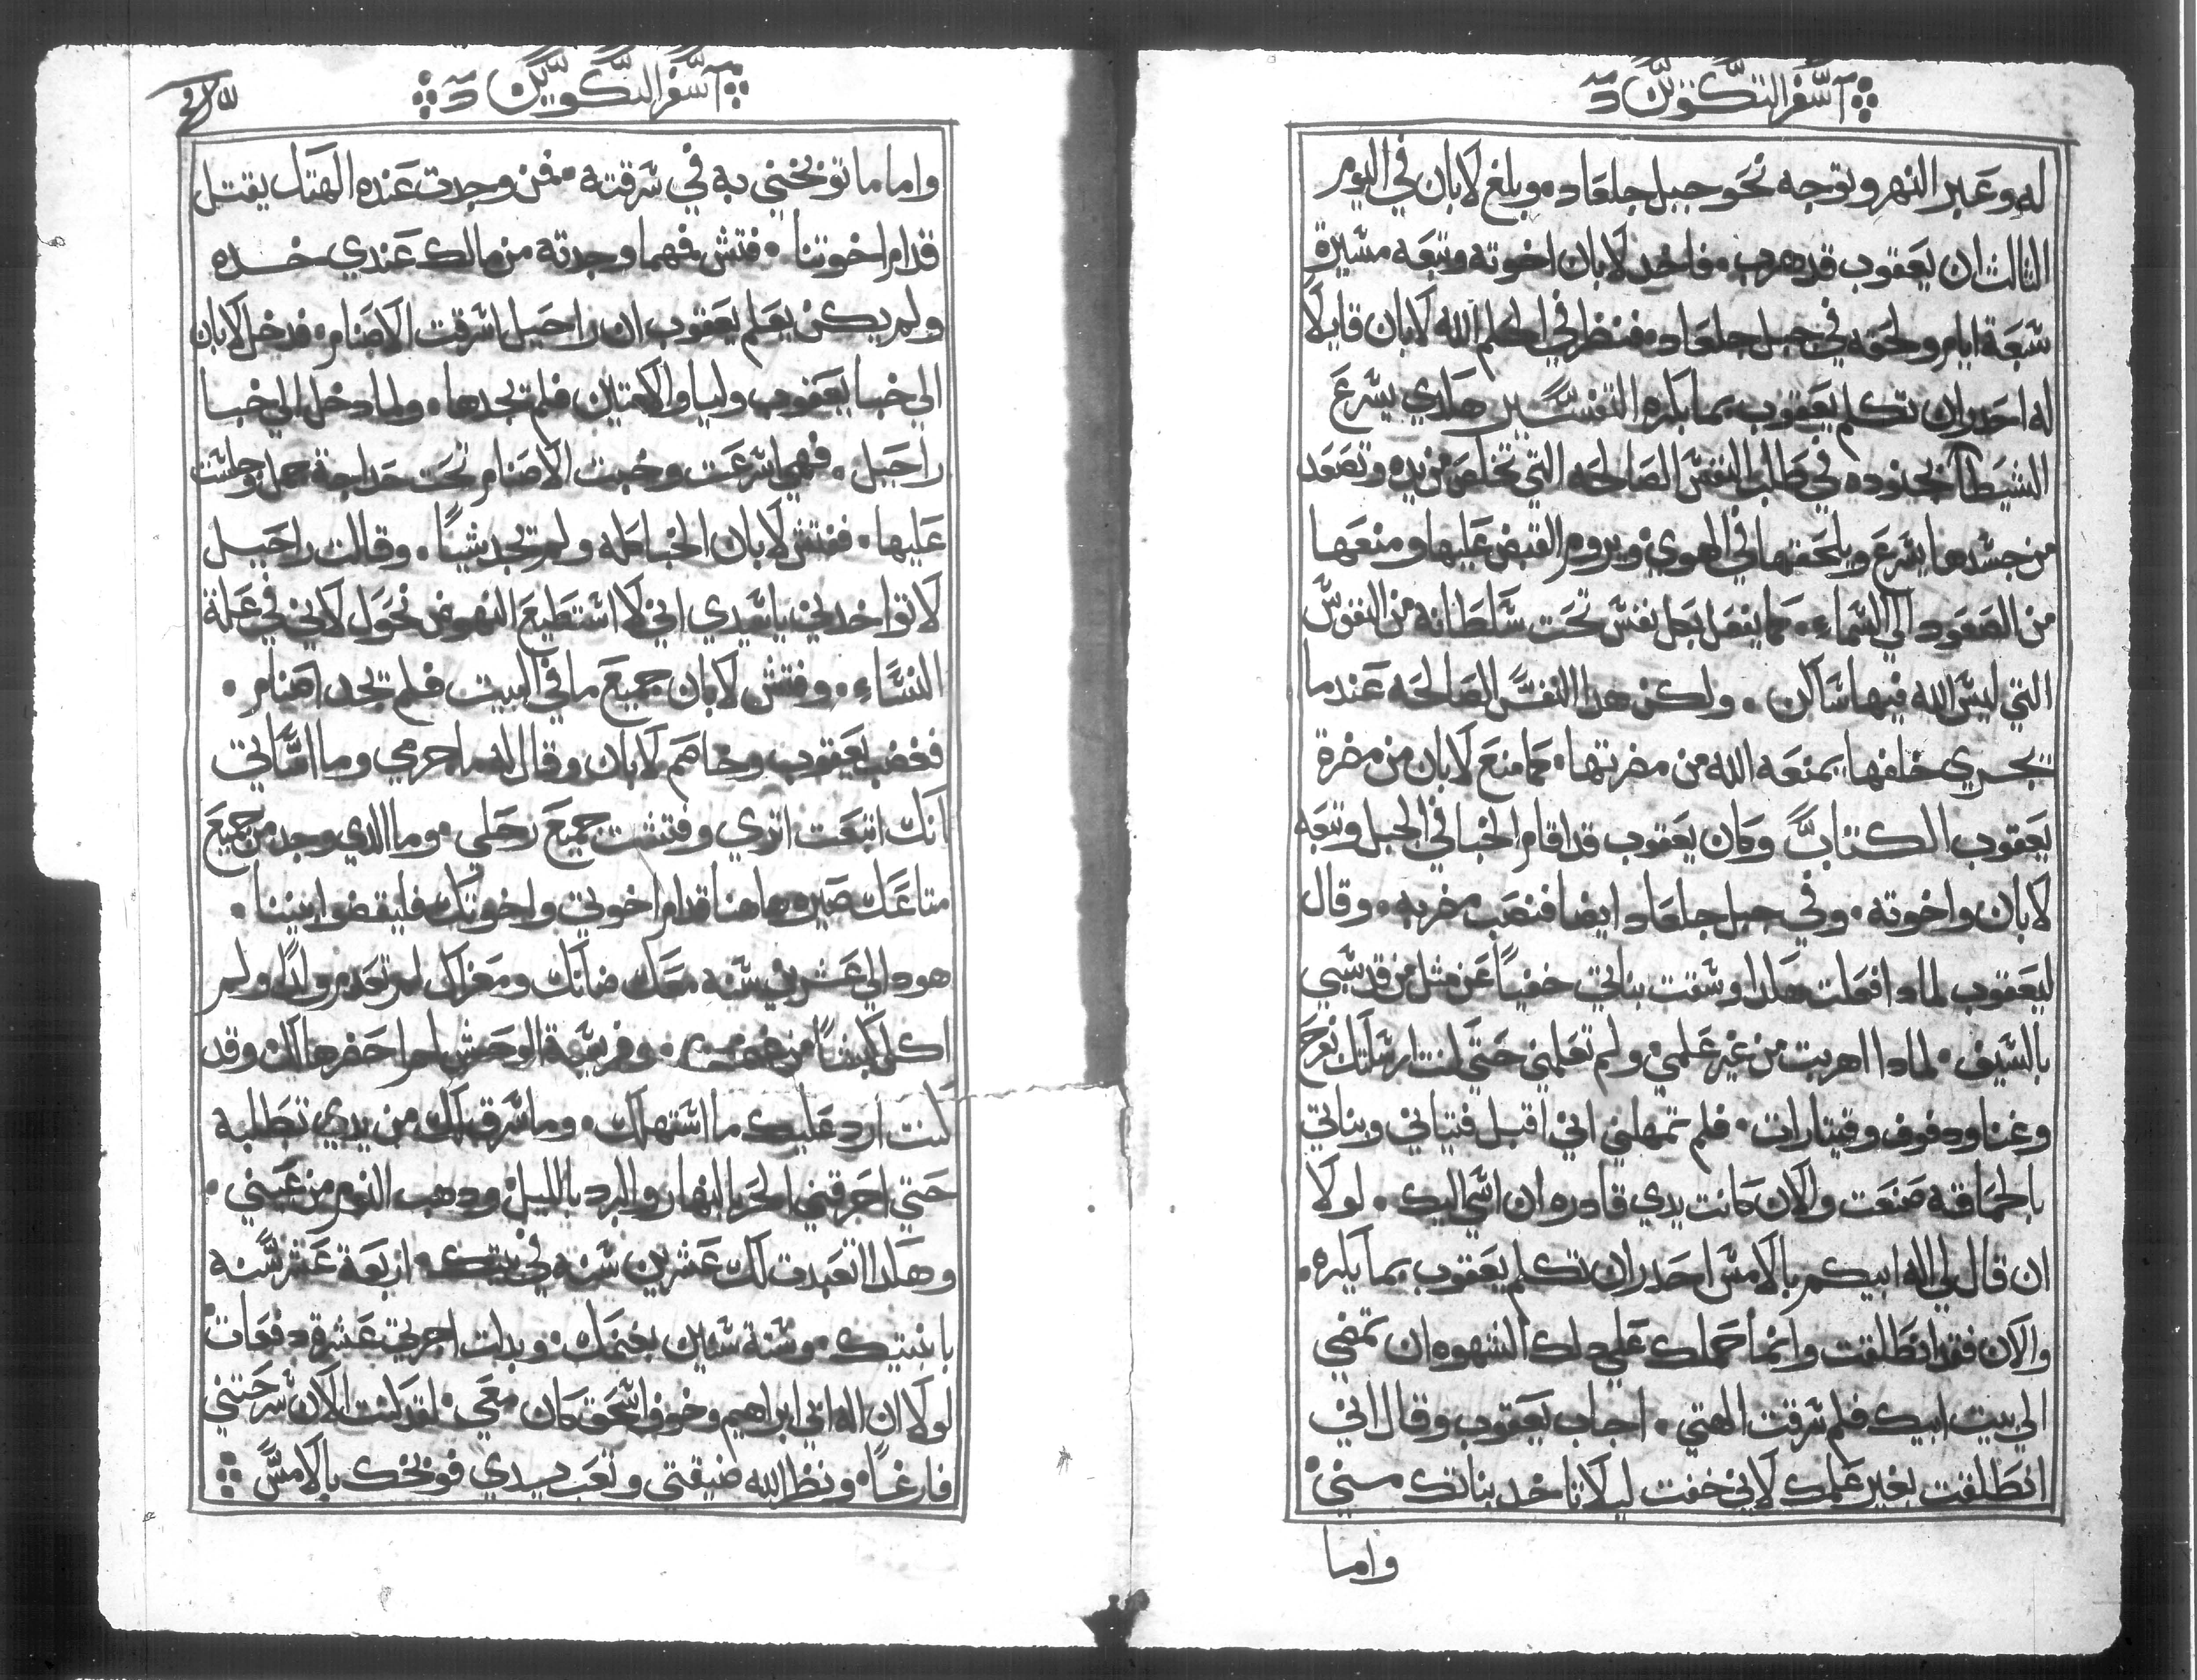 سفر التكوين
له وعبر النهر وتوجه نحو جبل جلعاد. وبلغ لابان في اليوم
التالت ان يعقوب قد هرب. فاخد لابان اخوته وتبعه مسيرة
سبعة ايام ولحقه في جبل جلعاد. فنظر في كلم الله لابان قايلًا
له احدر ان تكلم يعقوب بما يكره التفسير هكدي يسرع
الشيطان بجنوده في طلب النفس الصالحه التي تخلص من يده وتصعد
من جسدها يسرع ويلحقها في الهوي ويروم القبض عليها ومنعها
من الصعود الي السماء. كما يفعل بكل نفس تحت سلطانه من النفوس
التي ليس الله فيها ساكن. ولكن هدا النفس الصالحه عندما
يجري خلفها يمنعه الله من مضرتها. كما منع لابان من مضرة
يعقوب الكتاب وكان يعقوب قد اقام الخبا في الجبل وتبعه
لابان واخوته. وفي جبل جلعاد ايضا فنصب مضربه. وقال
ليعقوب لمادا فعلت هكدا وسقت بناتي خفيًا عن مثل من قد سبي
بالسيف. لمادا اهربت من غير علمي. ولم تعلمني حتي كنت ارسلتك بفرح
وغنا ودفوف وقيتارات. فلم تمهلني اني اقبل فتياني وبناتي
بالحماقه صنعت والان كانت يدي قادره ان اسي اليك. لولا
ان قال لي اله ابيكم بالامس احدر ان تكلم يعقوب بما يكره.
والان فقد انطلقت وانما حملك علي دلك الشهوه ان تمضي
الي بيت ابيك فلم سرقت الهتي. اجاب يعقوب وقال اني
انطلقت بغير علمك لاني خفت ليلا تاخد بناتك مني
واما
سفر التكوين
واما ما توبخني به في سرقته. فمن وجدت عنده الهتك يقتل
قدام اخوتنا. فتش فمهما وجدته من مالك عندي خده
ولم يكن يعلم يعقوب ان راحيل اسرقت الاصنام. فدخل لابان
الي خبا يعقوب وليا والامتين فلم يجدها. ولما دخل الي خبا
راحيل. فهي اسرعت وخبت الاصنام تحت حداجة جمل وجلست
عليها. ففتش لابان الخبا كله ولم يجد شيئًا. وقالت راحيل
لا تواخدني يا سيدي اني لا استطيع النهوض نحوك لاني في علة
النساء. وفتش لابان جميع ما في البيت فلم يجد اصنام.
فغضب يعقوب وخاصم لابان وقال له ما جرمي وما اساتي
انك اتبعت اتري وفتشت جميع رحلي. وما الدي وجد من جميع
متاعك صيره هاهنا قدام اخوتي واخوتك فليقضوا بيننا.
هودا لي عشرين سنه معك ضانك ومعزاك لم تعدم ولدًا ولم
اكل كبشًا من غنمك. وفريسة الوحش لم احضرها لك وقد
كنت ارد عليك ما استهلك. وما سرق لك من يدي تطلبه
حتي احرقني الحر بالنهار والبرد بالليل ودهب النوم من عيني.
وهكدا تعبدت لك عشرين سنه في بيتك. اربعة عشر سنه
بابنتيك. وستة سنين بغنمك. وبدلت اجرتي عشرة دفعات
لولا ان اله ابي ابراهيم وخوف اسحق كان معي. لقد كنت الان سرحتني
فارغًا. ونظر الله ضيقتي وتعب يدي فوبخك بالامس